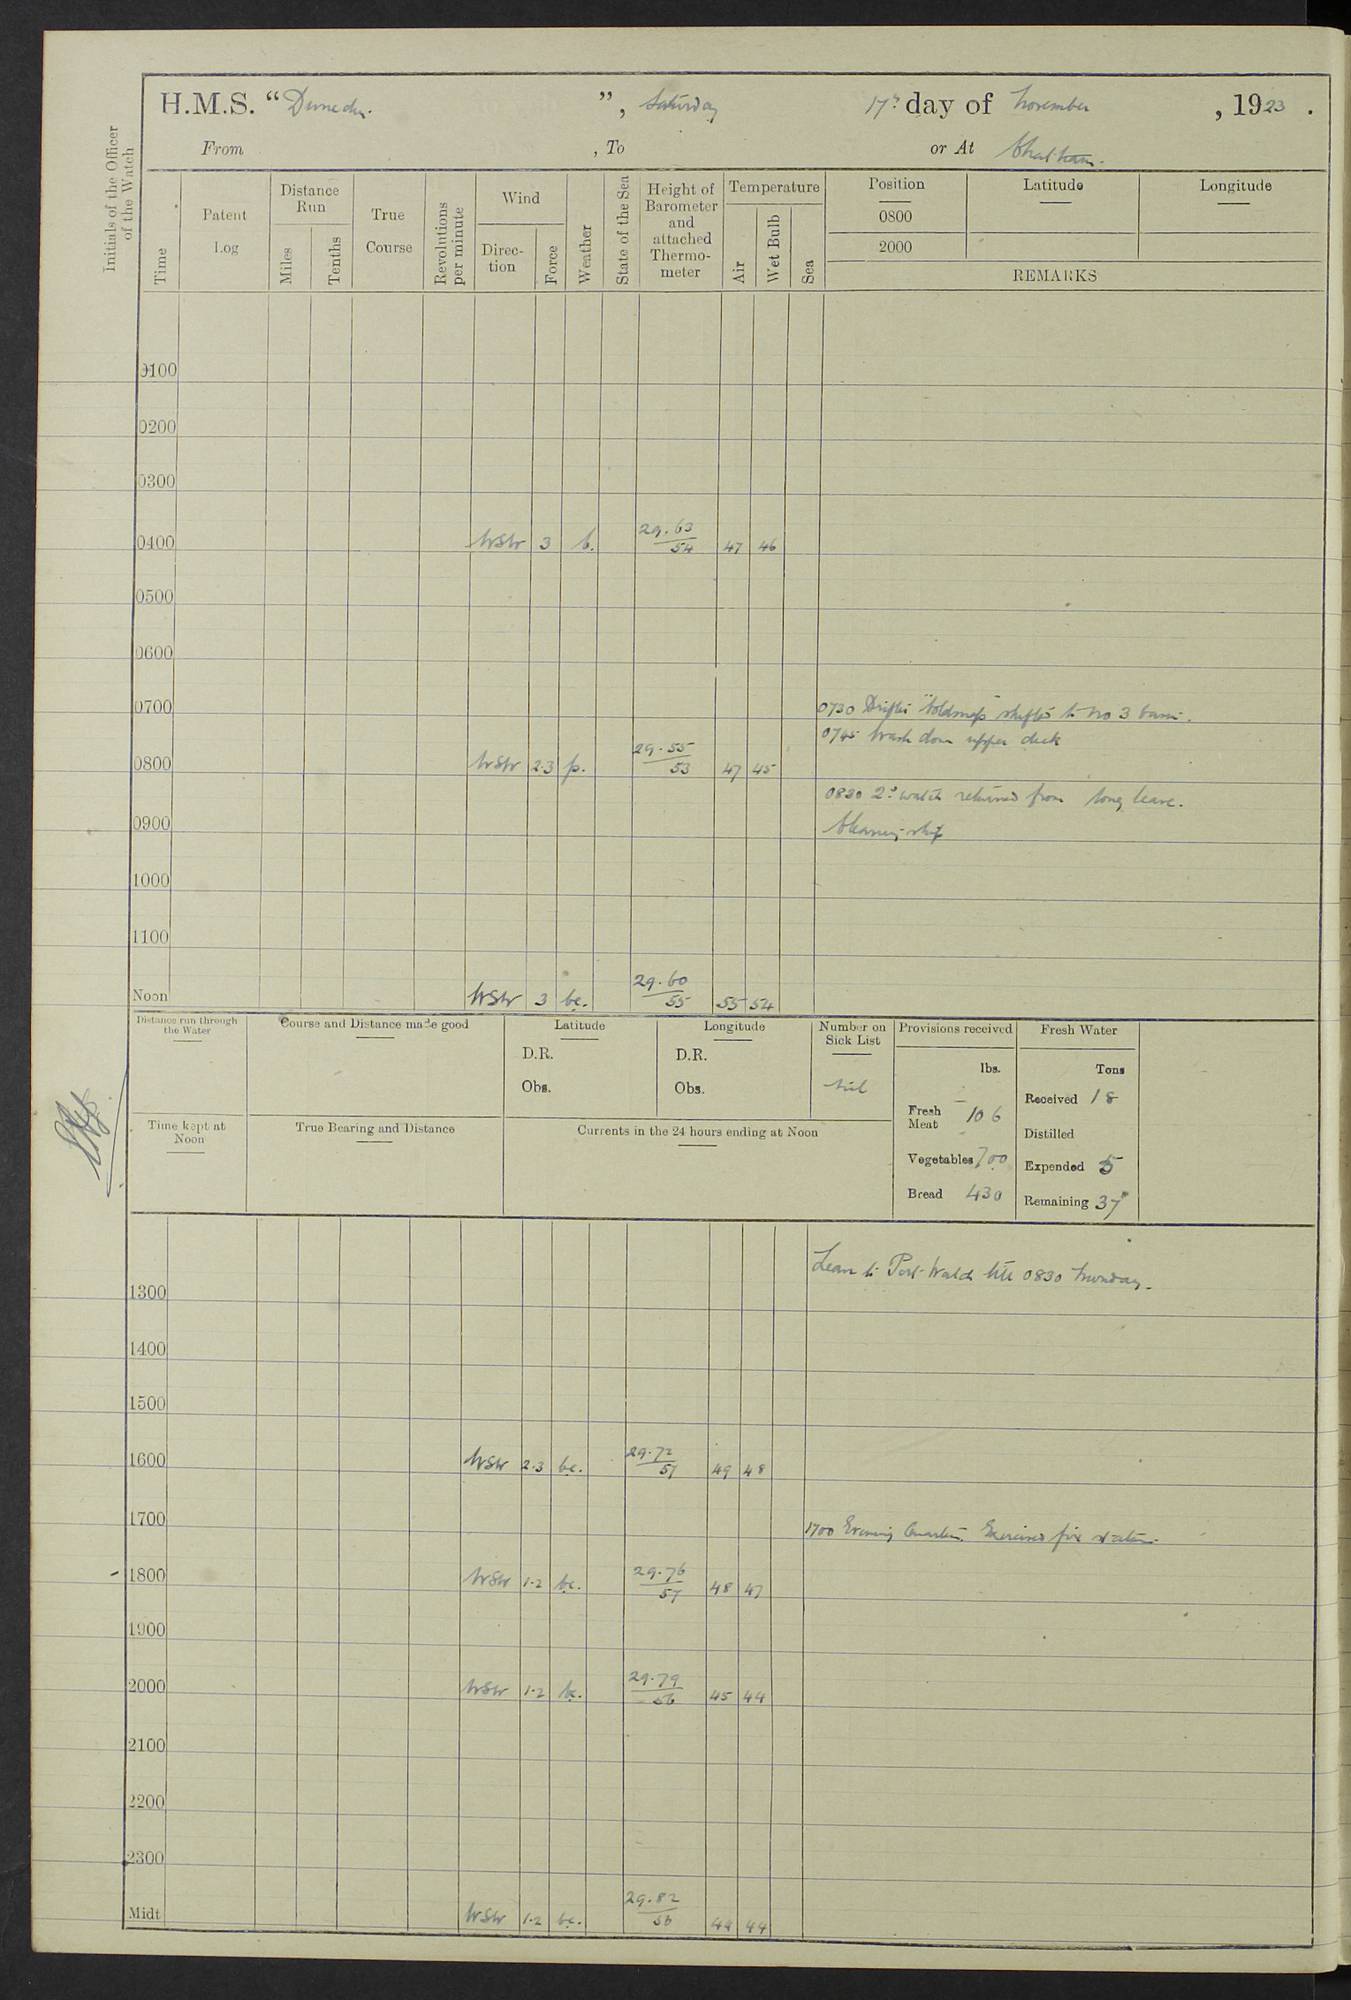 H.M.S. "Dunedin.", Saturday 17th day of November, 1923.
From , To or At Chatham.
Initials of the Officer of the Watch
Time
Patent Log
Distance Run
Miles
Tenths
True Course
Revolutions per minute
Wind
Direction
Force
Weather
State of the Sea
Height of Barometer and attached Thermometer
Temperature
Air
Wet Bulb
Sea
Position
Latitude
Longitude
0800
2000
REMARKS
0100
0200
0300
0400 WSW 3 b. 29.63 54 47 46
0500
0600
0700
0730 Drifter "Coldsnap" shifted to No 3 basin.
0745 Wash down upper deck
0800 WSW 2.3 p. 29.55 53 47 45
0830 2d watch returned from long leave.
0900 Cleaning ship
1000
1100
Noon WSW 3 bc. 29.60 55 55 54
Distance run through the Water
Course and Distance made good
Latitude
D.R.
Obs.
Longitude
D.R.
Obs.
Number on Sick List
nil
Provisions received
lbs.
Fresh Meat 106
Vegetables 700
Bread 430
Fresh Water
Tons
Received 18
Distilled
Expended 5
Remaining 37
Time kept at Noon
True Bearing and Distance
Currents in the 24 hours ending at Noon
Leave to Port Watch till 0830 Monday.
1300
1400
1500
1600 WSW 2.3 bc. 29.72 57 49 48
1700
1700 Evening Quarters. Exercised fire stations.
1800 WSW 1.2 bc. 29.76 57 48 47
1900
2000 WSW 1.2 bc. 29.79 56 45 44
2100
2200
2300
Midt WSW 1.2 bc. 29.82 56 44 44